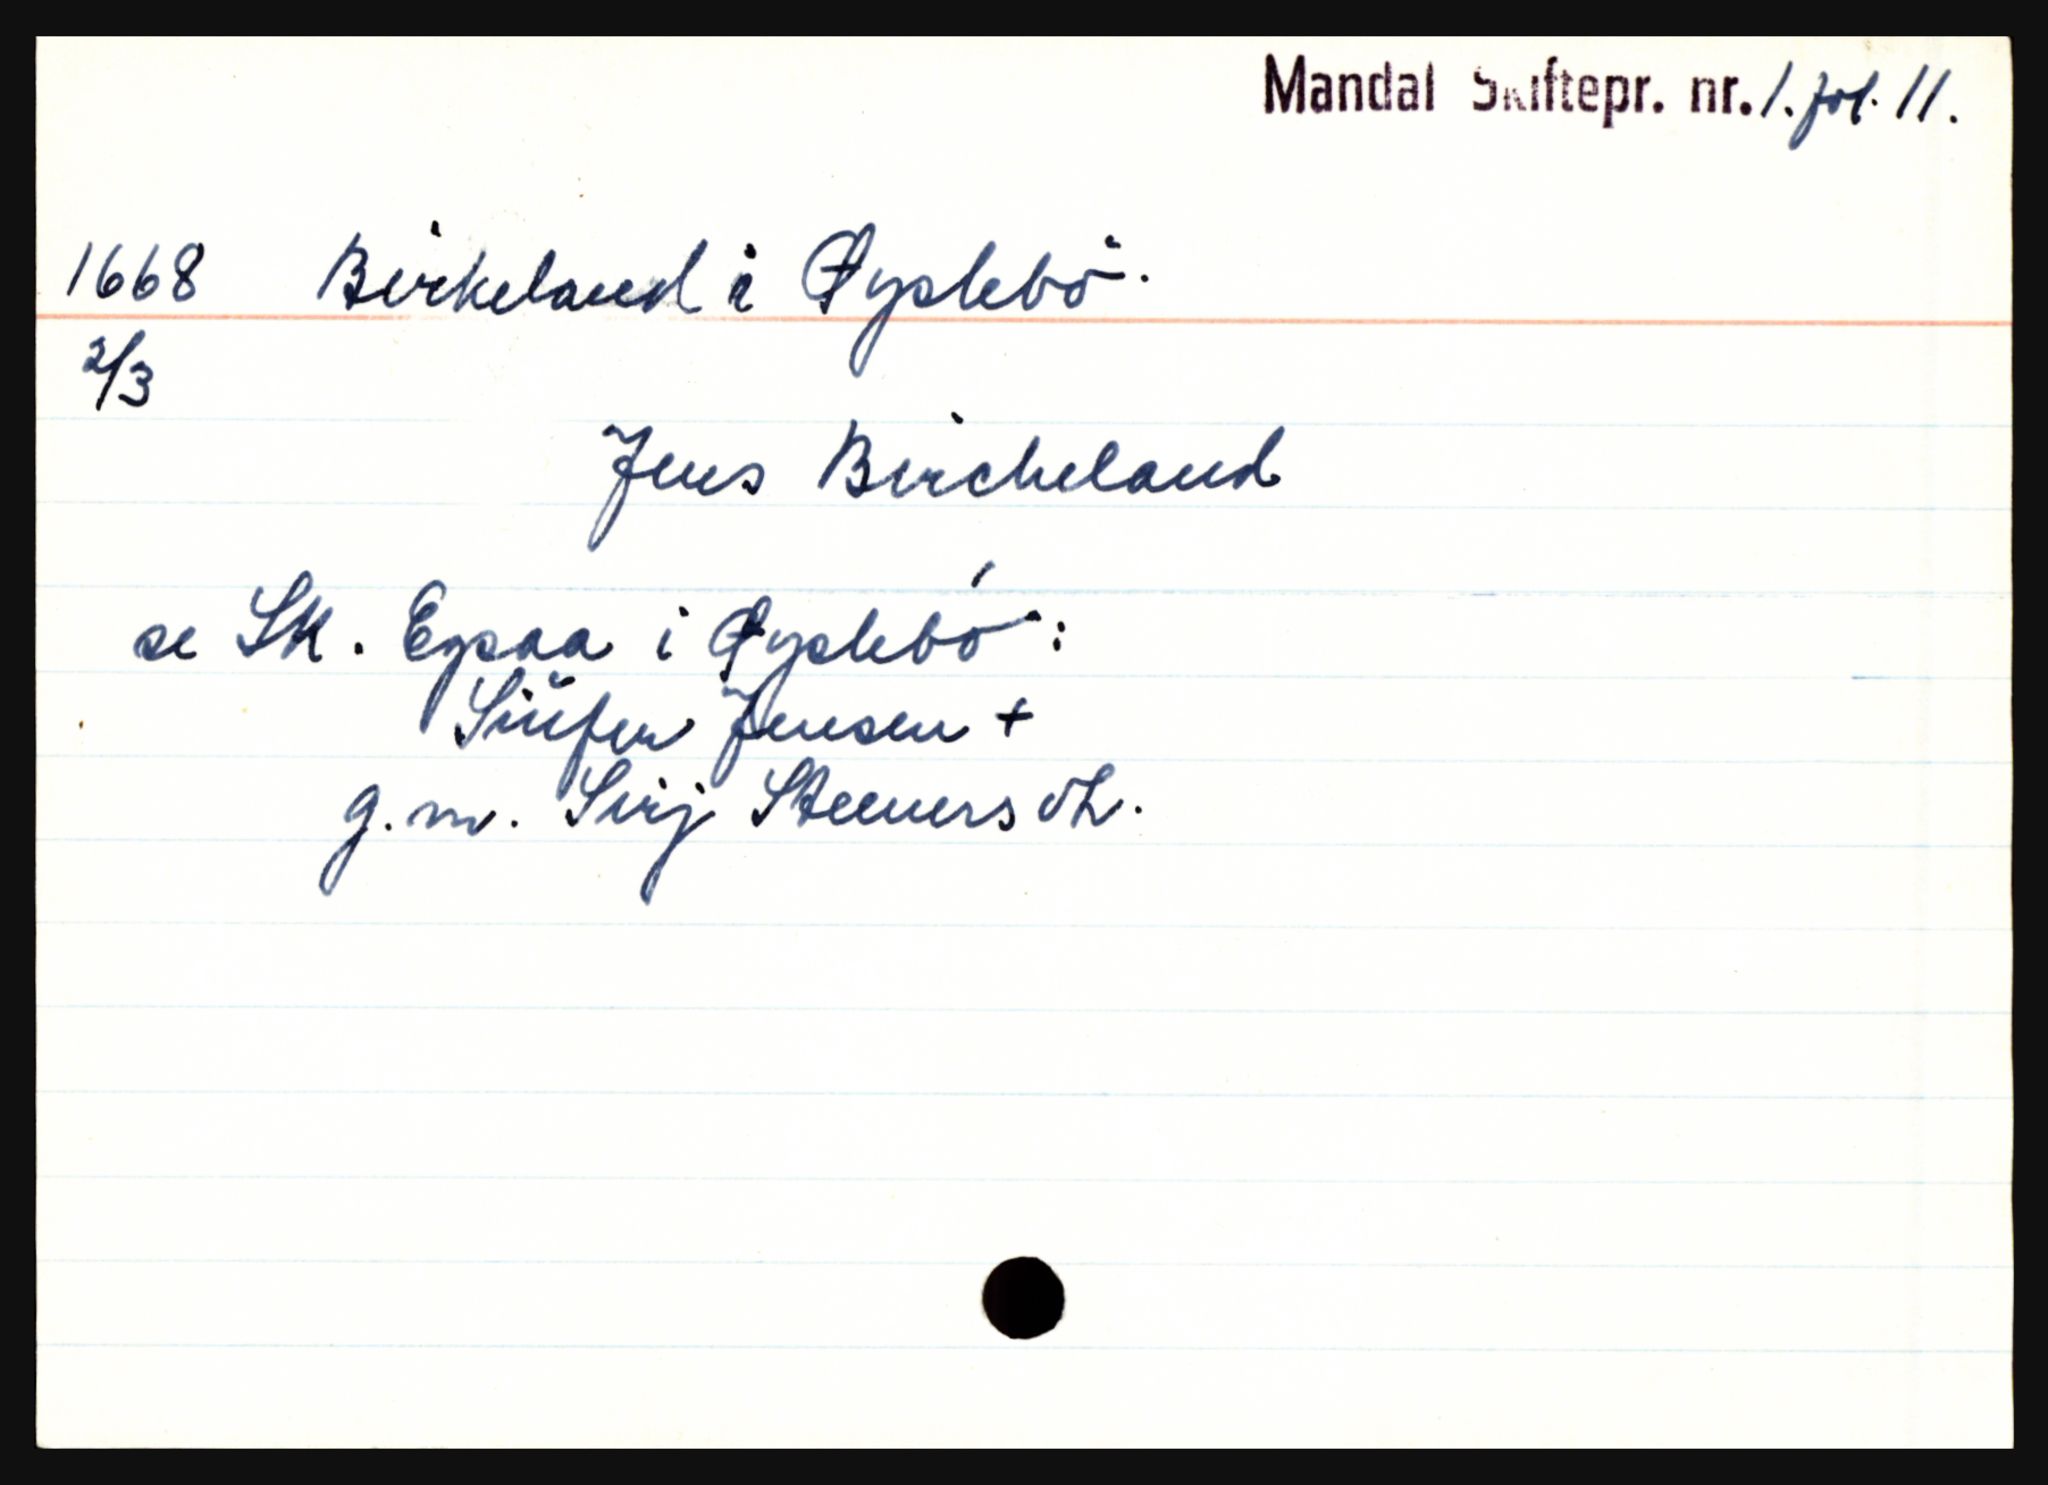 Mandal Skiftepr. nr. 1. fol. 11.
1668 Birkeland i Øyslebö.
2/3
Jens Bircheland
se Sk. Eysaa i Øyslebö:
Siŭfer Jensen +
g. m. Sirj Steenersdt.